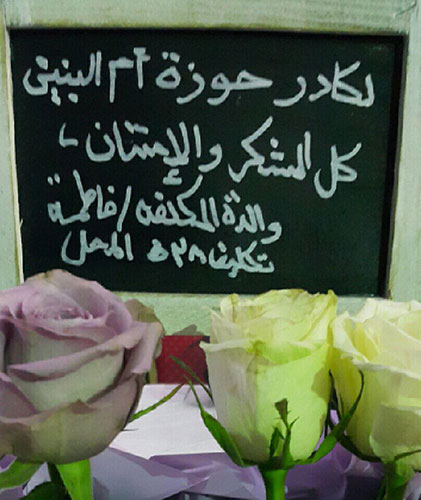 لكادر حوزة أم البنين
كل الشكر والإمتنان ،
والدة المكلفه / فاطمة
تكليف ٣٨ ه المحل